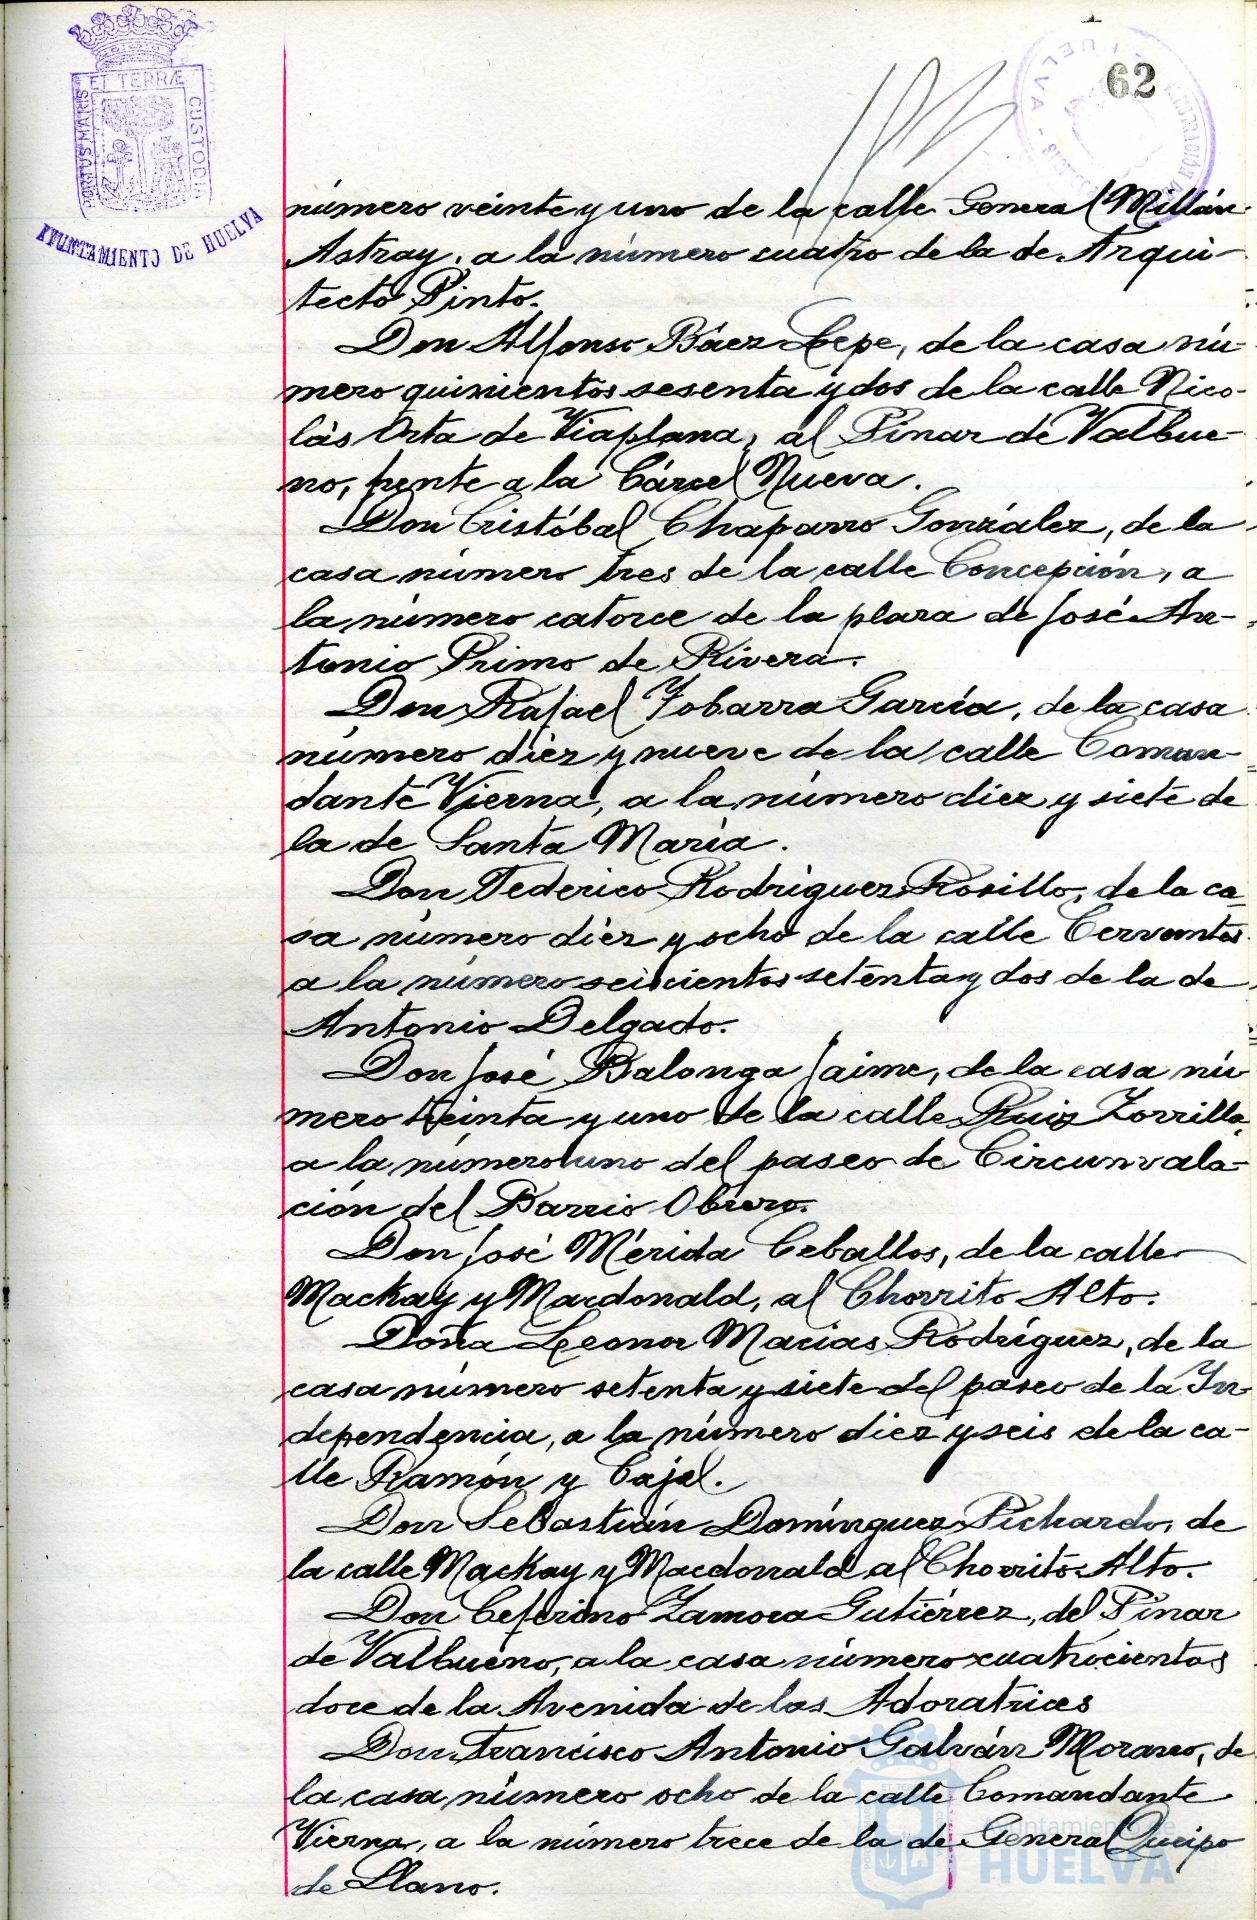 62
PORTUS MARIS ET TERRÆ CUSTODIA
AYUNTAMIENTO DE HUELVA
número veinte y uno de la calle General Millán
Astray, a la número cuatro de la de Arqui-
tecto Pinto.
Don Alfonso Báez Lepe, de la casa nú-
mero quinientos sesenta y dos de la calle Nico-
lás Orta de Viaplana, al Pinar de Valbue-
no, frente a la Cárcel Nueva.
Don Cristóbal Chaparro González, de la
casa número tres de la calle Concepción, a
la número catorce de la plaza de José An-
tonio Primo de Rivera.
Don Rafael Tobarra García, de la casa
número diez y nueve de la calle Coman-
dante Vierna, a la número diez y siete de
la de Santa María.
Don Federico Rodríguez Rosillo, de la ca-
sa número diez y ocho de la calle Cervantes
a la número seiscientos setenta y dos de la de
Antonio Delgado.
Don José Balonga Jaime, de la casa nú
mero treinta y uno de la calle Ruiz Zorrilla,
a la número uno del paseo de Circunvala-
ción del Barrio Obrero.
Don José Mérida Ceballos, de la calle
Mackay y Macdonald, al Chorrito Alto.
Doña Leonor Macías Rodríguez, de la
casa número setenta y siete del paseo de la In-
dependencia, a la número diez y seis de la ca-
lle Ramón y Cajal.
Don Sebastián Domínguez Pichardo, de
la calle Mackay y Macdonald al Chorrito Alto.
Don Ceferino Zamora Gutiérrez, del Pinar
de Valbueno, a la casa número cuatrocientos
doce de la Avenida de las Adoratrices
Don Francisco Antonio Galván Moraro, de
la casa número ocho de la calle Comandante
Vierna, a la número trece de la de General Queipo
de Llano.
Ayuntamiento de
HUELVA